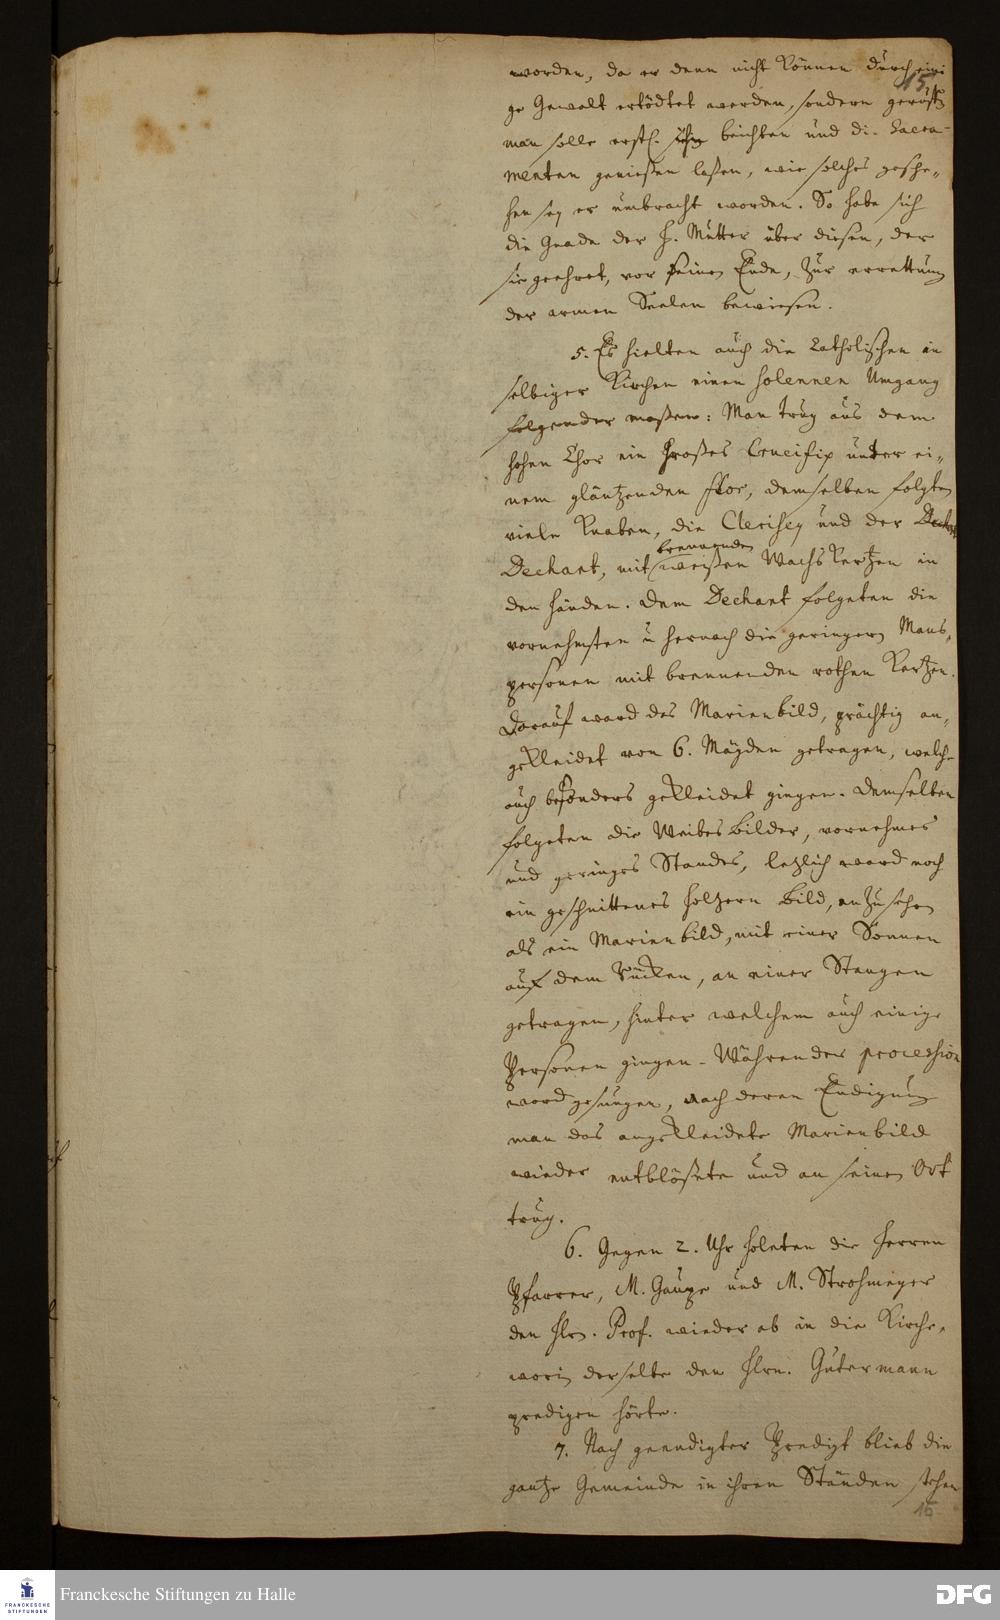 worden, da er denn nicht können durch eini
15.
ge Gewalt ertödtet werden, sondern geruffen
man solle erstl. ihn beichten und di. Sacra-
menten genießen laßen, wie solches gesche-
hen sey er umbracht worden. So habe sich
die Gnade der H. Mutter über diesen, der
sie geehret, vor seinem Ende, zur errettung
der armen Seelen bewiesen.
5. Es hielten auch die Catholischen in
selbiger Kirchen einen solennen Umgang
folgender maßen: Man trug aus dem
hohen Chor ein großes Crucifix unter ei-
nem gläntzenden Flor, demselben folgten
viele Knaben, die Clerisey und der
brennenden
Dechant, mit weißen Wachs Kertzen in
den Händen. Dem Dechant folgeten die
vornehmsten u hernach die geringern Mans-
personen mit brennenden rothen Kertzen.
Darauf ward das Marienbild, prächtig an-
gekleidet von 6. Mägden getragen, welche
auch besonders gekleidet gingen. Demselben
folgeten die Weibes Bilder, vornehmes
und geringes Standes, letzlich ward noch
ein geschnittenes höltzern Bild, anzusehen
als ein Marienbild, mit einer Sonnen
auf dem Rücken, an einer Stangen
getragen, hinter welchem auch einige
Personen gingen. Währender procession
ward gesungen, nach deren Endigung
man das angekleidete Marienbild
wieder entblößete und an seinen Ort
trug.
6. Gegen 2. Uhr holeten die Herren
Pfarrer, M. Gaupp und M. Strohmeyer
den Hrn. Prof. wieder ab in die Kirche,
worin derselbe den Hrn. Gutermann
predigen hörte.
7. Nach geendigter Predigt blieb die
gantze Gemeinde in ihren Ständen stehen
15
Franckesche Stiftungen zu Halle
FRANCKESCHE
STIFTUNGEN
DFG